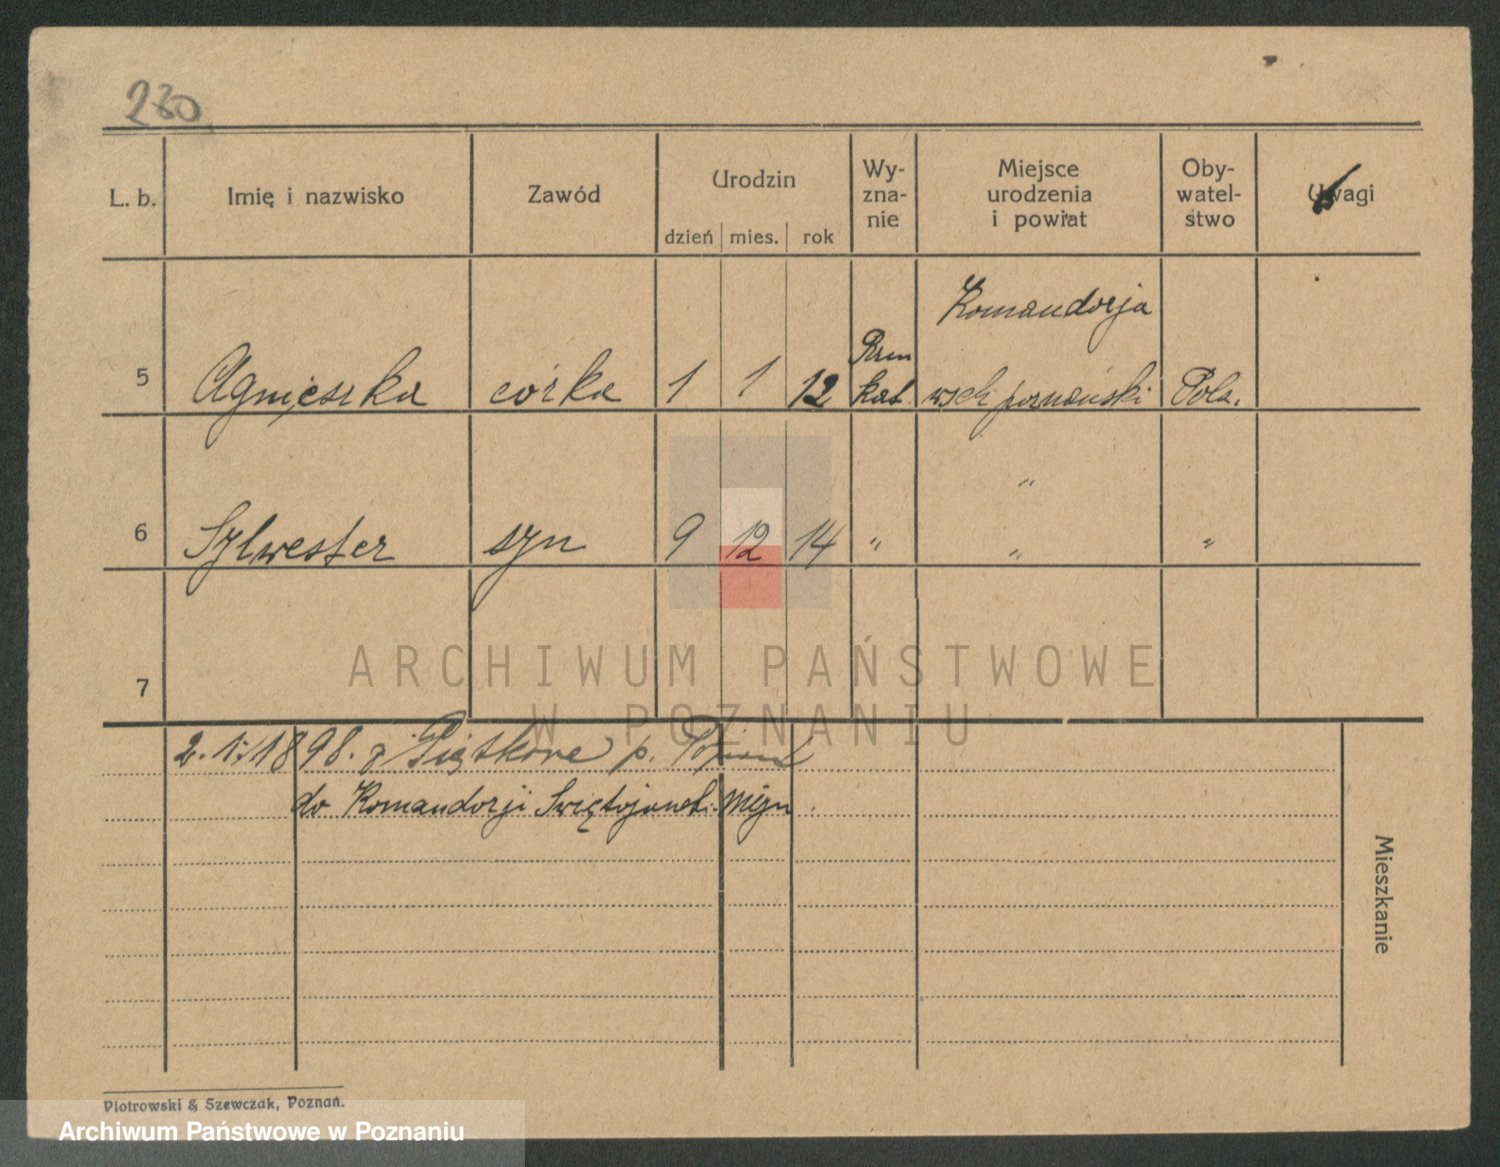 230
L. b. Imię i nazwisko Zawód Urodzin Wyznanie Miejsce urodzenia i powiat Obywatelstwo Uwagi
dzień mies. rok
Komandorja
5 Agnieszka córka 1 1 12 Rzm kat. wsch poznański Pols.
"
6 Sylwester syn 9 12 14 " " "
7
ARCHIWUM PAŃSTWOWE
W POZNANIU
2.1.1898. z Piątkowe p. Poznań
do Komandorji Świętojansk. Młyn.
Mieszkanie
Piotrowski & Szewczak, Poznań.
Archiwum Państwowe w Poznaniu